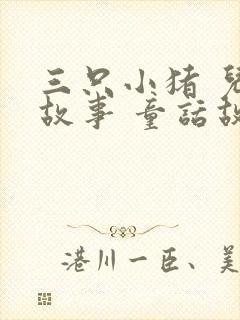 三只小猪
故事 童話故
港川一臣、美